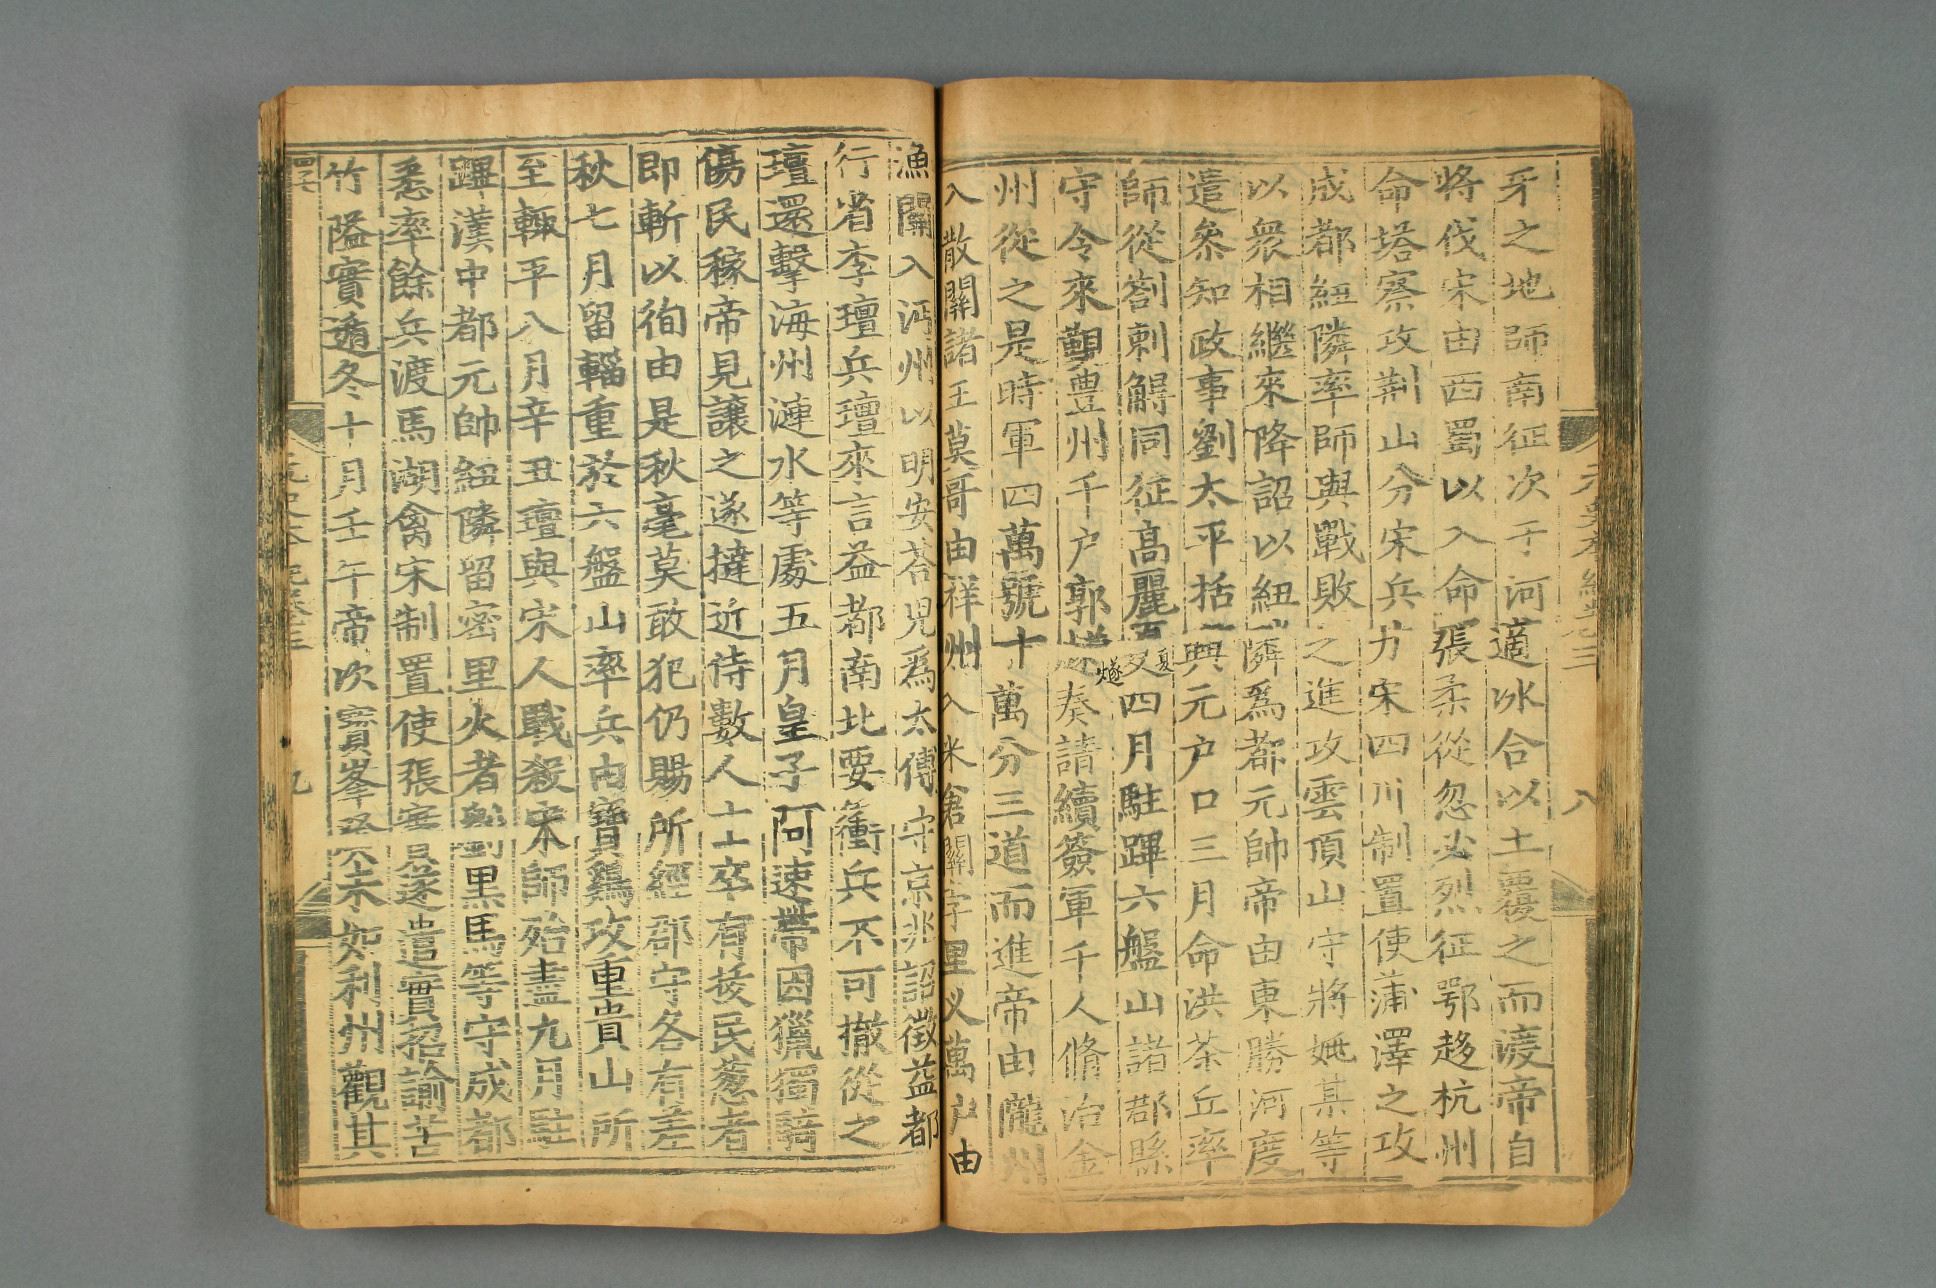 牙之地師南征次于河適冰合以土覆之而渡帝自
將伐宋由西蜀以入命張柔從忽必烈征鄂趍杭州
命塔察攻荆山分宋兵力宋四川制置使蒲澤之攻
成都紐隣率師與戰敗之進攻雲頂山守將姚某等
以衆相繼來降詔以紐隣爲都元帥帝由東勝河度
遣叅知政事劉太平括興元户口三月命洪茶丘率
師從劄剌䚟同征高麗夏四月駐蹕六盤山諸郡縣
守令來覲豊州千户郭燧奏請續簽軍千人脩治金
州從之是時軍四萬號十萬分三道而進帝由隴州
入散關諸王莫哥由祥州入米倉關孛里义萬户由
元史本紀卷三
八
夏
燧
漁關入沔州以明安荅兒爲太傅守京兆詔徵益都
行省李璮兵璮來言益都南北要衝兵不可撤從之
璮還擊海州漣水等處五月皇子阿速帶因獵獨騎
傷民稼帝見讓之遂撻近侍數人士卒有拔民葱者
即斬以徇由是秋毫莫敢犯仍賜所經郡守各有差
秋七月留輜重於六盤山率兵由寶雞攻重貴山所
至輒平八月辛丑璮與宋人戰殺宋師殆盡九月駐
蹕漢中都元帥紐隣留密里火者劉黑馬等守成都
悉率餘兵渡馬湖禽宋制置使張實遂遣實招諭苦
竹隘實遁冬十月壬午帝次寶峯癸未如利州觀其
元史本紀卷三
九